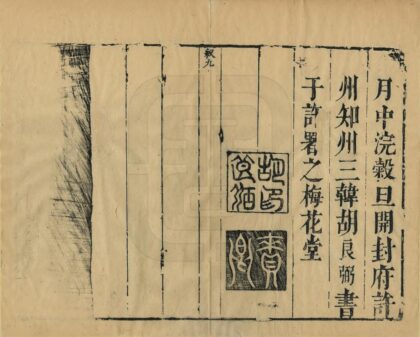 月中浣穀旦開封府許
州知州三韓胡良弼書
于許署之梅花堂
敘九